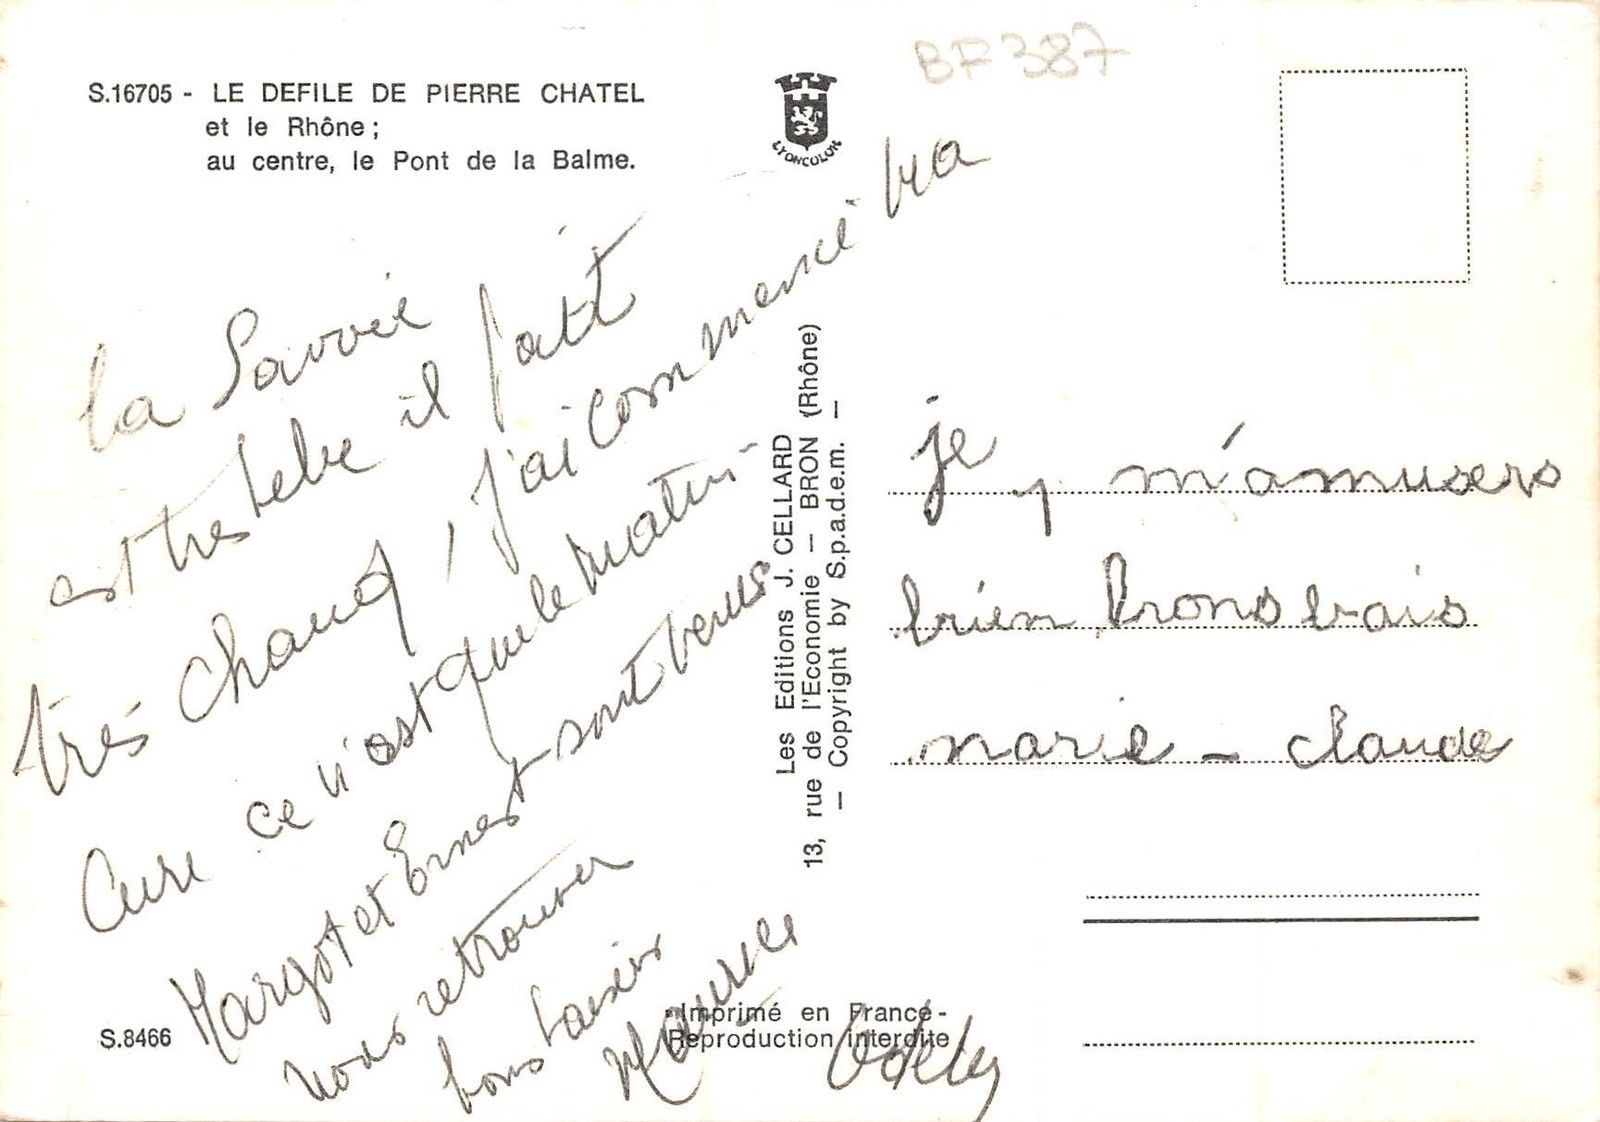 BF 387
S.16705 - LE DEFILE DE PIERRE CHATEL
et le Rhône ;
au centre, le Pont de la Balme.
LYONCOLOR
la Savoie
est tres belle il fait
très chaud, j'ai commencé ma
Cure ce n'est que le matin
Margot et Ernest sont venus
nous retrouver
bons baisers
Maurice
Odette
Les Editions J. CELLARD
13, rue de l'Economie — BRON (Rhône)
— Copyright by S.p.a.d.e.m. —
je m'amusers
bien bons bais
marie - claude
S.8466
Imprimé en France -
Reproduction interdite